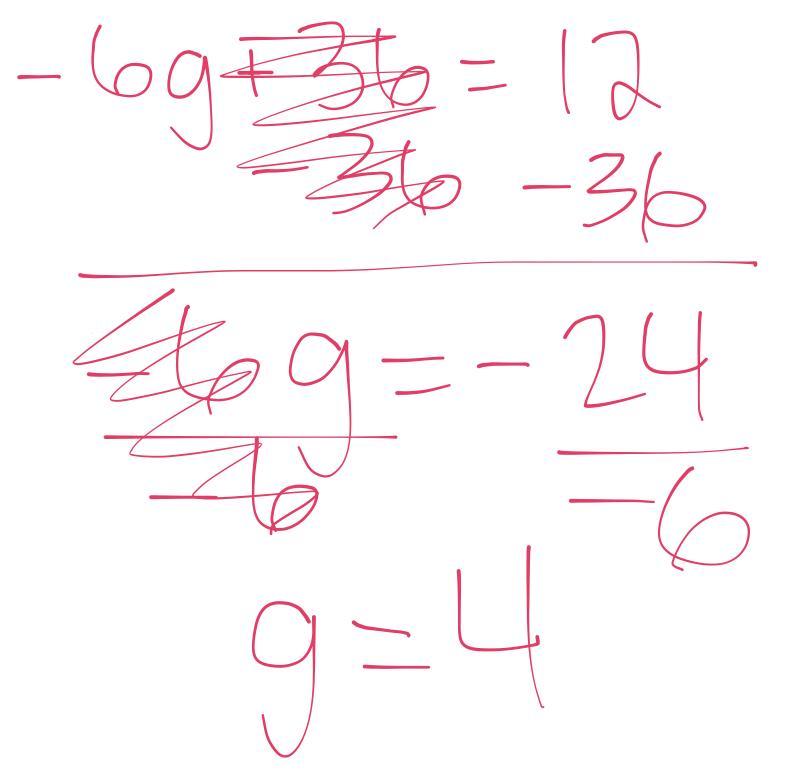 -6g+36 = 12
-36 -36
-6g = -24
-6 -6
g = 4